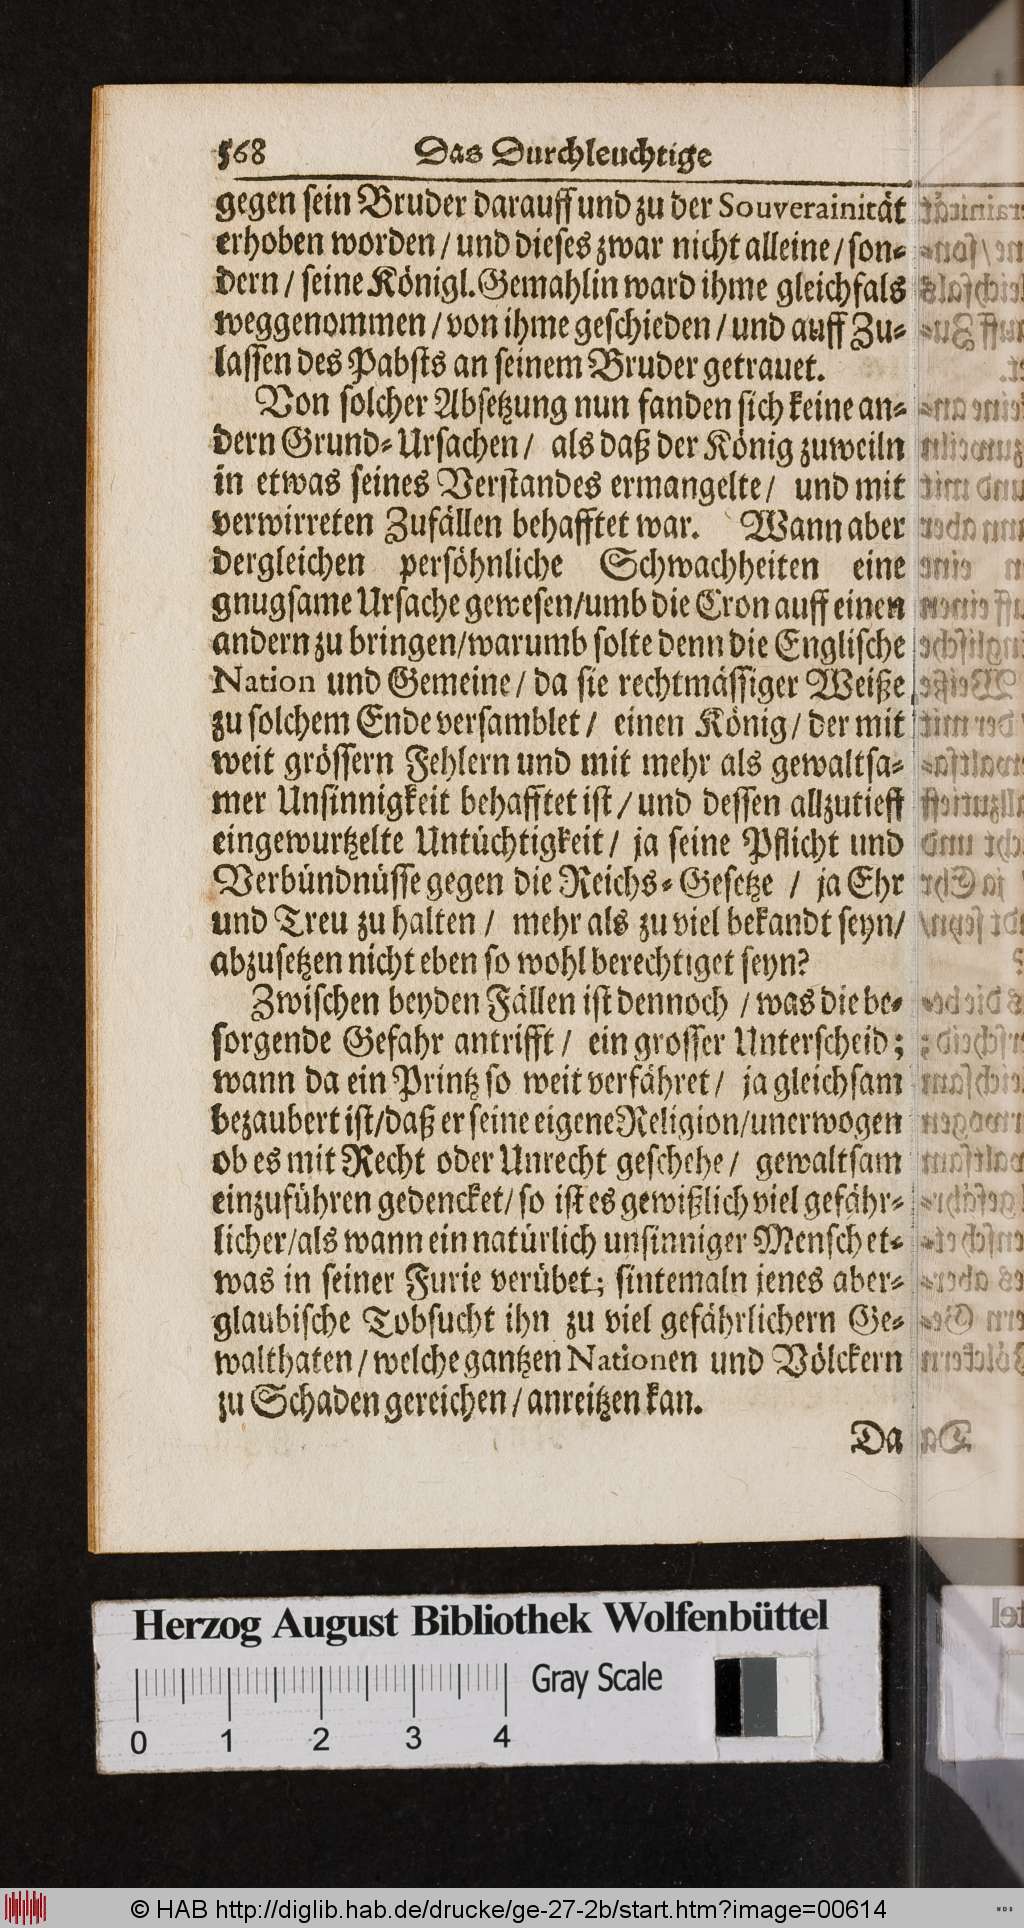 568 Das Durchleuchtige
gegen sein Bruder darauff und zu der Souverainität
erhoben worden / und dieses zwar nicht alleine / son-
dern / seine Königl. Gemahlin ward ihme gleichfals
weggenommen / von ihme geschieden / und auff Zu-
lassen des Pabsts an seinem Bruder getrauet.
Von solcher Absetzung nun fanden sich keine an-
dern Grund-Ursachen / als daß der König zuweiln
in etwas seines Verstandes ermangelte / und mit
verwirreten Zufällen behafftet war. Wann aber
dergleichen persöhnliche Schwachheiten eine
gnugsame Ursache gewesen/umb die Cron auff einen
andern zu bringen/warumb solte denn die Englische
Nation und Gemeine / da sie rechtmässiger Weiße
zu solchem Ende versamblet / einen König / der mit
weit grössern Fehlern und mit mehr als gewaltsa-
mer Unsinnigkeit behafftet ist / und dessen allzutieff
eingewurtzelte Untüchtigkeit / ja seine Pflicht und
Verbündnüsse gegen die Reichs-Gesetze / ja Ehr
und Treu zu halten / mehr als zu viel bekandt seyn/
abzusetzen nicht eben so wohl berechtiget seyn?
Zwischen beyden Fällen ist dennoch / was die be-
sorgende Gefahr antrifft / ein grosser Unterscheid;
wann da ein Printz so weit verfähret / ja gleichsam
bezaubert ist/daß er seine eigene Religion/unerwogen
ob es mit Recht oder Unrecht geschehe / gewaltsam
einzuführen gedencket/ so ist es gewißlich viel gefähr-
licher/als wann ein natürlich unsinniger Mensch et-
was in seiner Furie verübet; sintemaln jenes aber-
glaubische Tobsucht ihn zu viel gefährlichern Ge-
walthaten / welche gantzen Nationen und Völckern
zu Schaden gereichen / anreitzen kan.
Da
Herzog August Bibliothek Wolfenbüttel
Gray Scale
0 1 2 3 4
© HAB http://diglib.hab.de/drucke/ge-27-2b/start.htm?image=00614